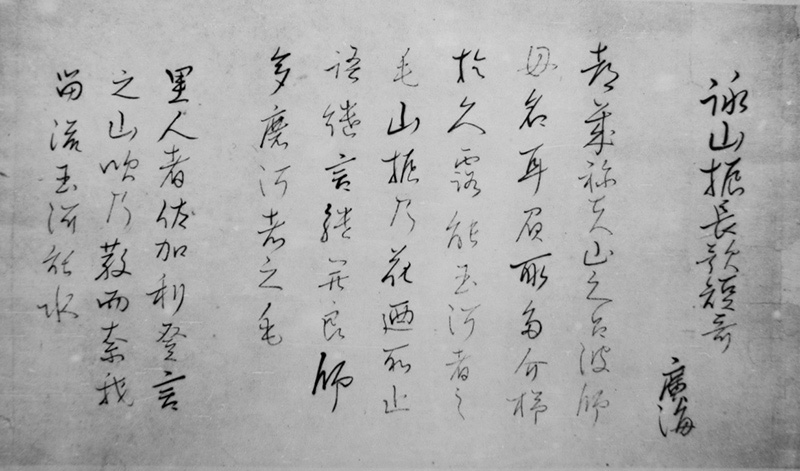 詠山振長歌短哥
廣海
都萬祢夫山之名波師
母名耳負所多介梯
於久露能玉河者之
毛山振乃花廼所止
語継言継無良師
多麿河者之毛
里人者佐加利登言
之山吹乃散而奈我
留流玉河能水